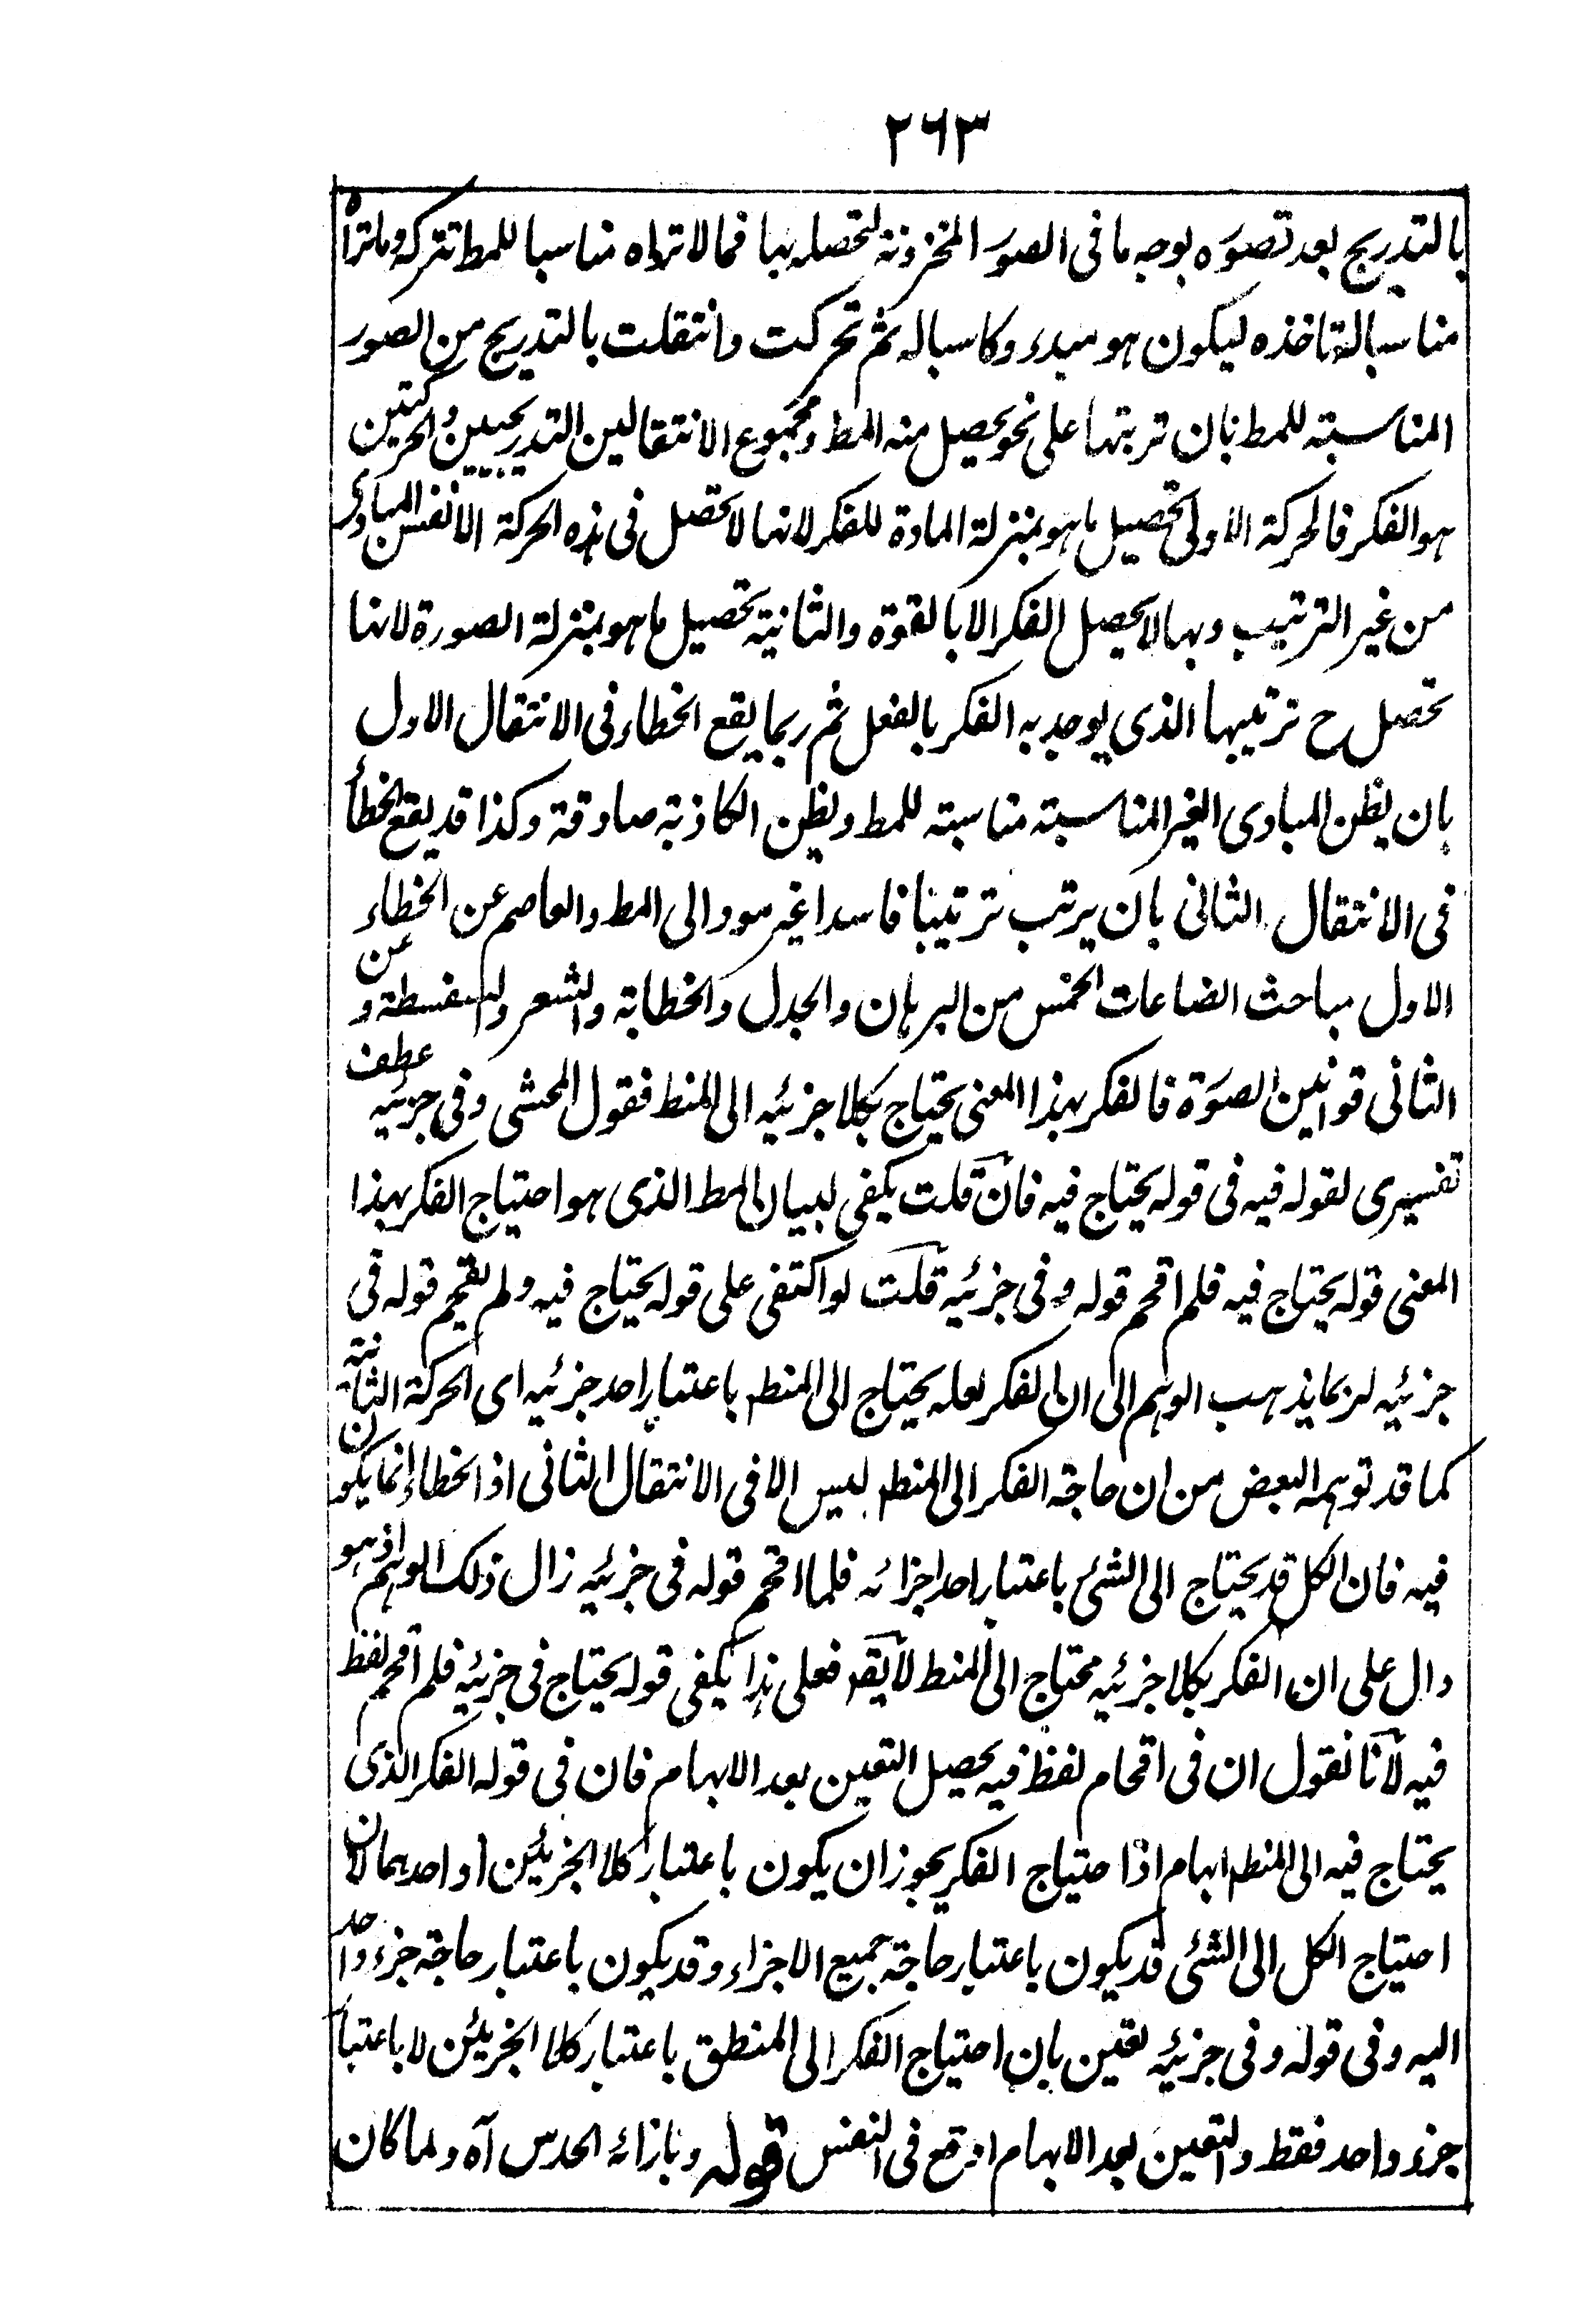 ٢٦٣
بالتدريج بعد تصوره بوجه ما فى الصور المخزونة لتحصله بها فما لا تراه مناسبا للمط تتركه وما تراه
مناسبا له تاخذه ليكون هو مبدء وكاسبا له ثم تحركت وانتقلت بالتدريج من الصور
المناسبة للمط بان ترتبها على نحو يحصل منه المط ومجموع الانتقالين التدريجيين والحركتين
هو الفكر فالحركة الاولى تحصيل ما هو بمنزلة المادة للفكر لانها لا تحصل فى هذه الحركة الا نفس المبادى
من غير الترتيب وبها لا يحصل الفكر الا بالقوة والثانية تحصيل ما هو بمنزلة الصورة لانها
تحصل ح ترتيبها الذى يوجد به الفكر بالفعل ثم ربما يقع الخطاء فى الانتقال الاول
بان يظن المبادى الغير المناسبة مناسبة للمط ويظن الكاذبة صادقة وكذا قد يقع الخطأ
فى الانتقال الثانى بان يرتب ترتيبا فاسدا غير مود الى المط والعاصم عن الخطاء
الاول مباحث الضاعات الخمس من البرهان والجدل والخطابة والشعر والسفسطة و عن
الثانى قوانين الصورة فالفكر بهذا المعنى يحتاج بكلا جزئيه الى المنط فقول المحشى وفى جزئيه عطف
تفسيرى لقوله فيه فى قوله يحتاج فيه فان قلت يكفى لبيان المط الذى هو احتياج الفكر بهذا
المعنى قوله يحتاج فيه فلم اقحم قوله وفى جزئيه قلت لو اكتفى على قوله يحتاج فيه ولم يقحم قوله فى
جزئيه لربما يذهب الوهم الى ان الفكر لعله يحتاج الى المنط باعتبار احد جزئيه اى الحركة الثانية
كما قد توهمه البعض من ان حاجة الفكر الى المنط ليس الا فى الانتقال الثانى اذ الخطاء انما يكون
فيه فان الكل قد يحتاج الى الشئ باعتبار احد اجزائه فلما اقحم قوله فى جزئيه زال ذلك الوهم اذ هو
دال على ان الفكر بكلا جزئيه محتاج الى المنط لا يقه فعلى هذا يكفى قوله يحتاج فى جزئيه فلم اقحم لفظ
فيه لانا نقول ان فى اقحام لفظ فيه يحصل التعين بعد الابهام فان فى قوله الفكر الذى
يحتاج فيه الى المنط ابهام اذا حتياج الفكر يجوز ان يكون باعتبار كلا الجزئين او احدهما لان
احتياج الكل الى الشئ قد يكون باعتبار حاجة جميع الاجزاء وقد يكون باعتبار حاجة جزء واحد
اليه وفى قوله وفى جزئيه تعين بان احتياج الفكر الى المنطق باعتبار كلا الجزئين لا باعتبا
جزء واحد فقط والتعين بعد الابهام اوقع فى النفس قوله وبازائه الحدس آه ولما كان